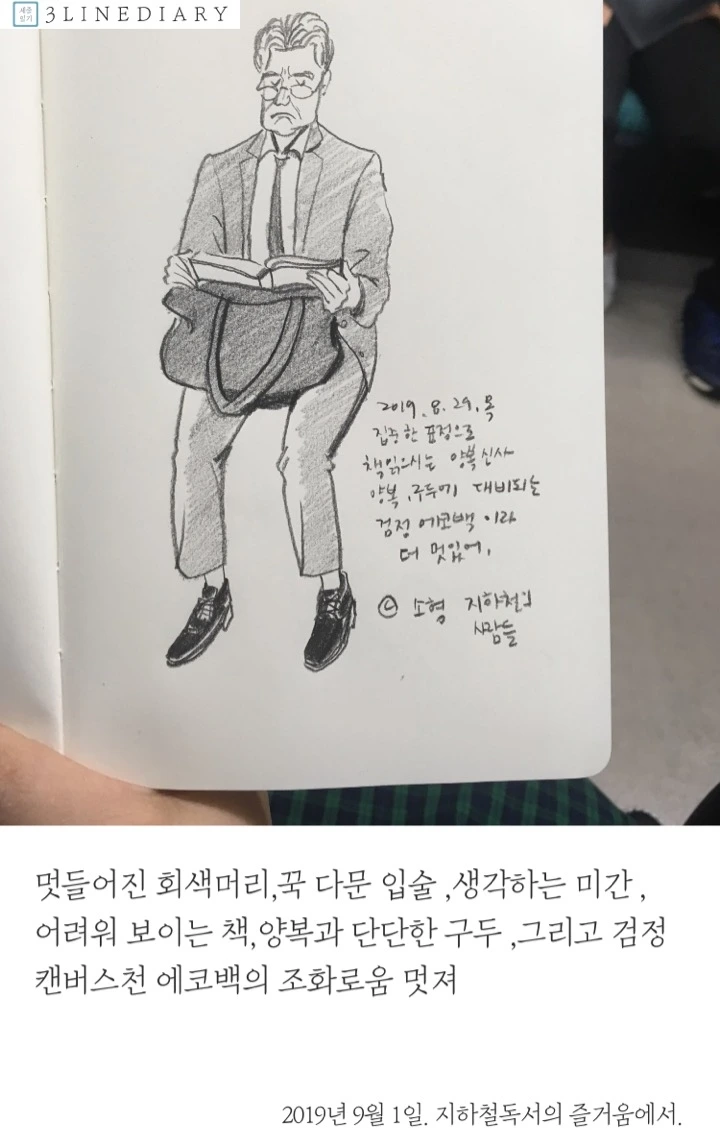 세줄
일기
3LINEDIARY
2019.8.29.목
집중한 표정으로
책읽으시는 양복신사
양복,구두에 대비되는
검정 에코백 이라
더 멋있어,
ⓒ 소형 지하철의
사람들
멋들어진 회색머리,꾹 다문 입술 ,생각하는 미간 ,
어려워 보이는 책,양복과 단단한 구두 ,그리고 검정
캔버스천 에코백의 조화로움 멋져
2019년 9월 1일. 지하철독서의 즐거움에서.